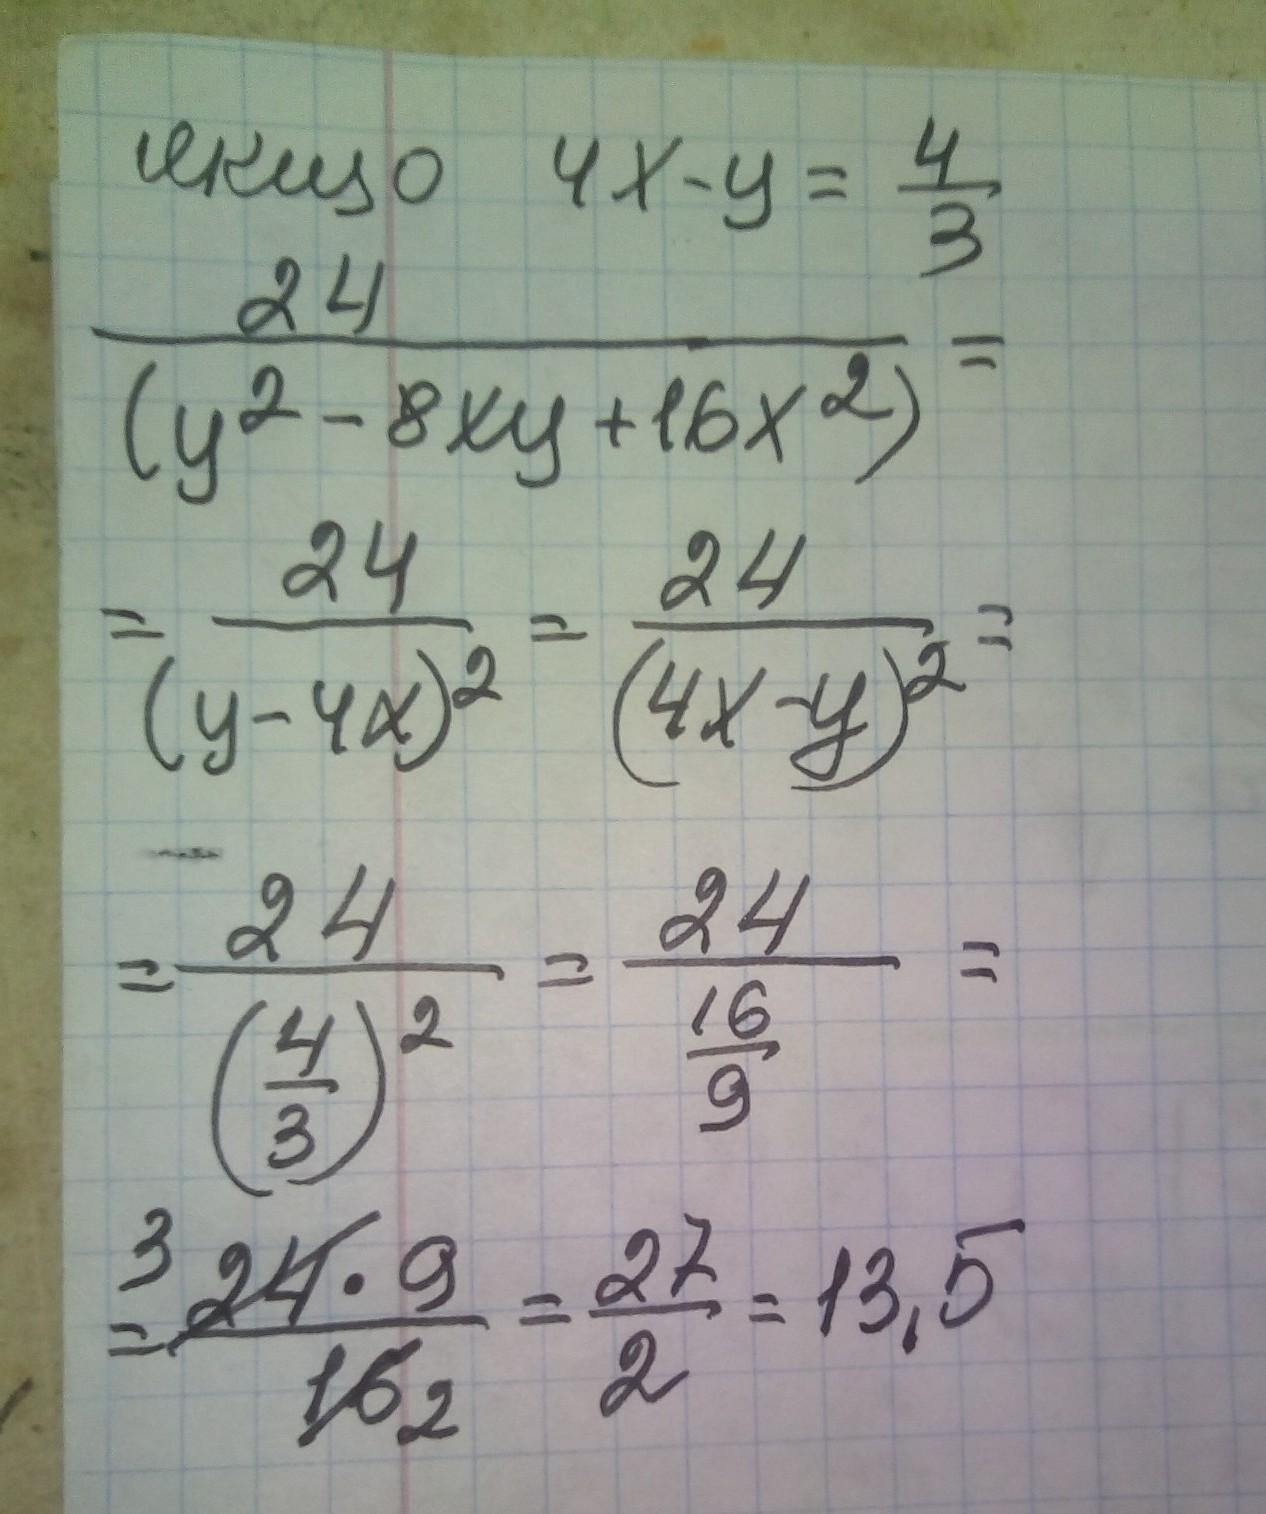 якщо 4x-y = 4/3
24/(y²-8xy+16x²) =
= 24/(y-4x)² = 24/(4x-y)² =
= 24/(4/3)² = 24/(16/9) =
= ³24·9/16₂ = 27/2 = 13,5